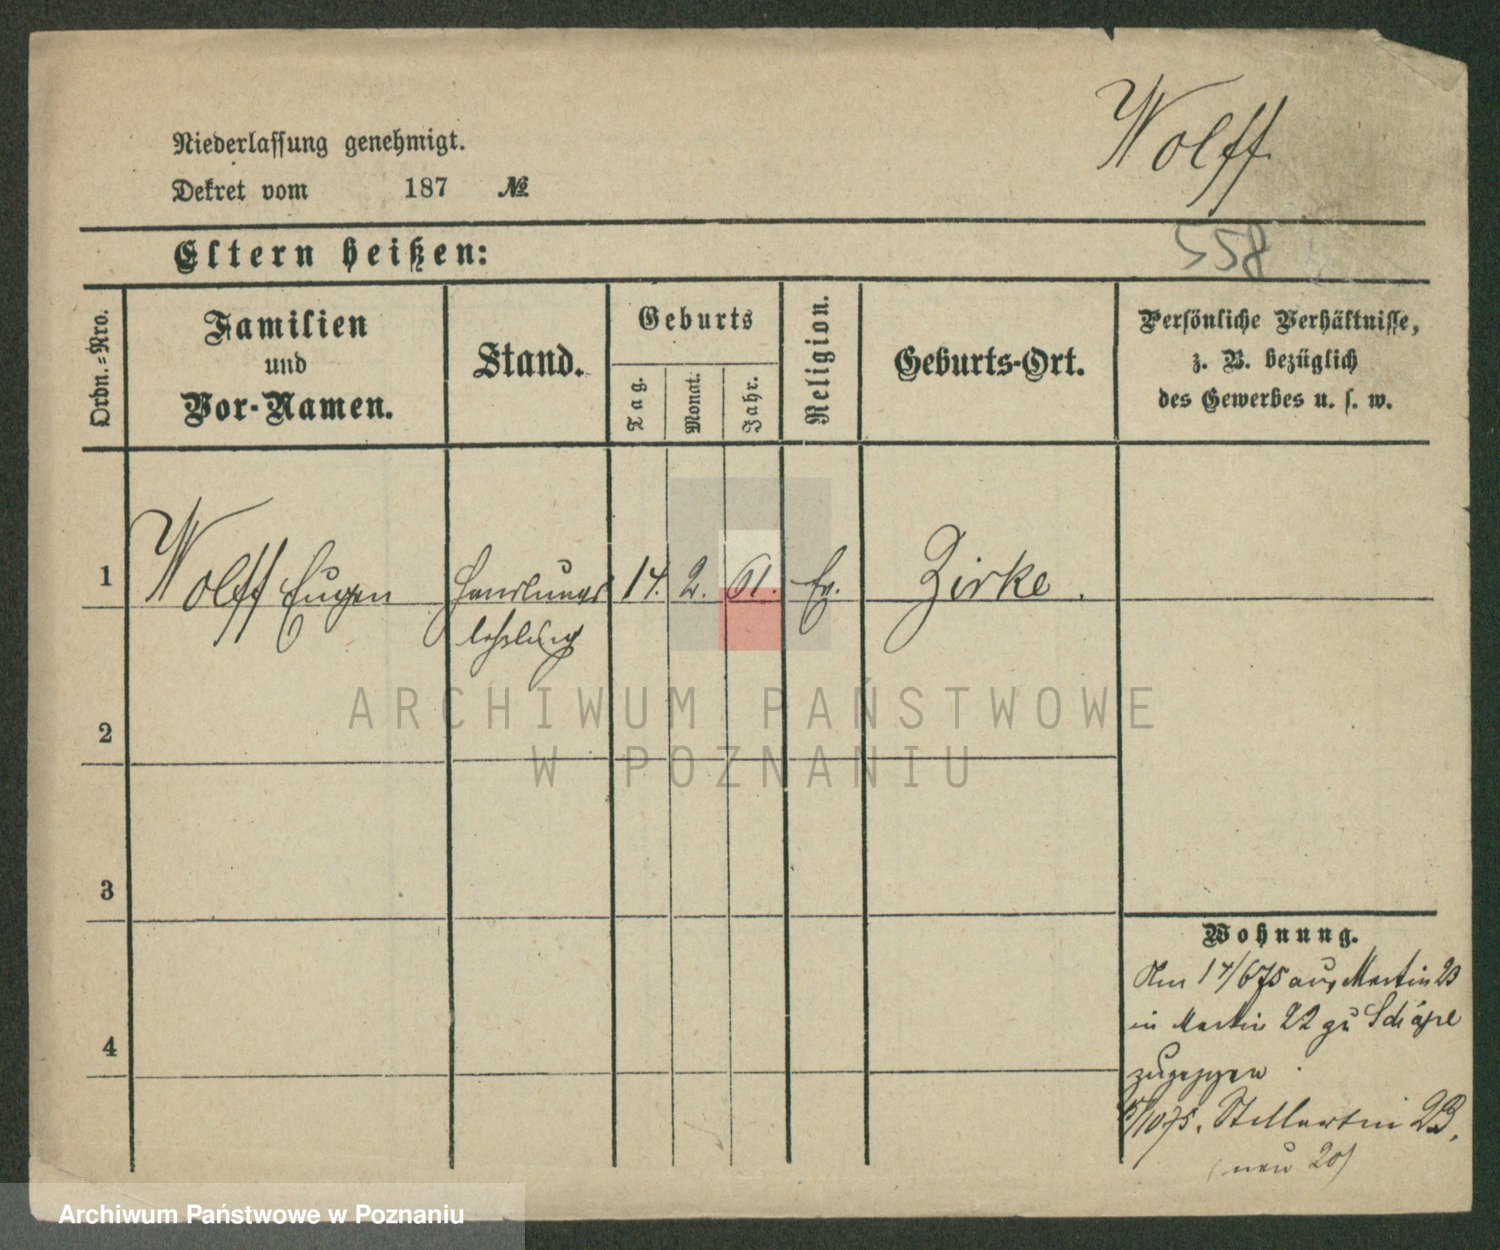 Wolff
Niederlassung genehmigt.
Dekret vom 187 №
Eltern heißen:
558
Ordn.-Nro.
Familien
und
Vor-Namen.
Stand.
Geburts
Tag.
Monat.
Jahr.
Religion.
Geburts-Ort.
Persönliche Verhältnisse,
z. B. bezüglich
des Gewerbes u. s. w.
1 Wolff Eugen Handlungs 14. 2. 61. Ev. Zirke.
lehrling
2
3
4
Wohnung.
Am 14/6 75 aus Martin 23
in Martin 22 zu
zugezogen
/10 75. St Martin 23.
(neu 20)
ARCHIWUM PAŃSTWOWE
W POZNANIU
Archiwum Państwowe w Poznaniu